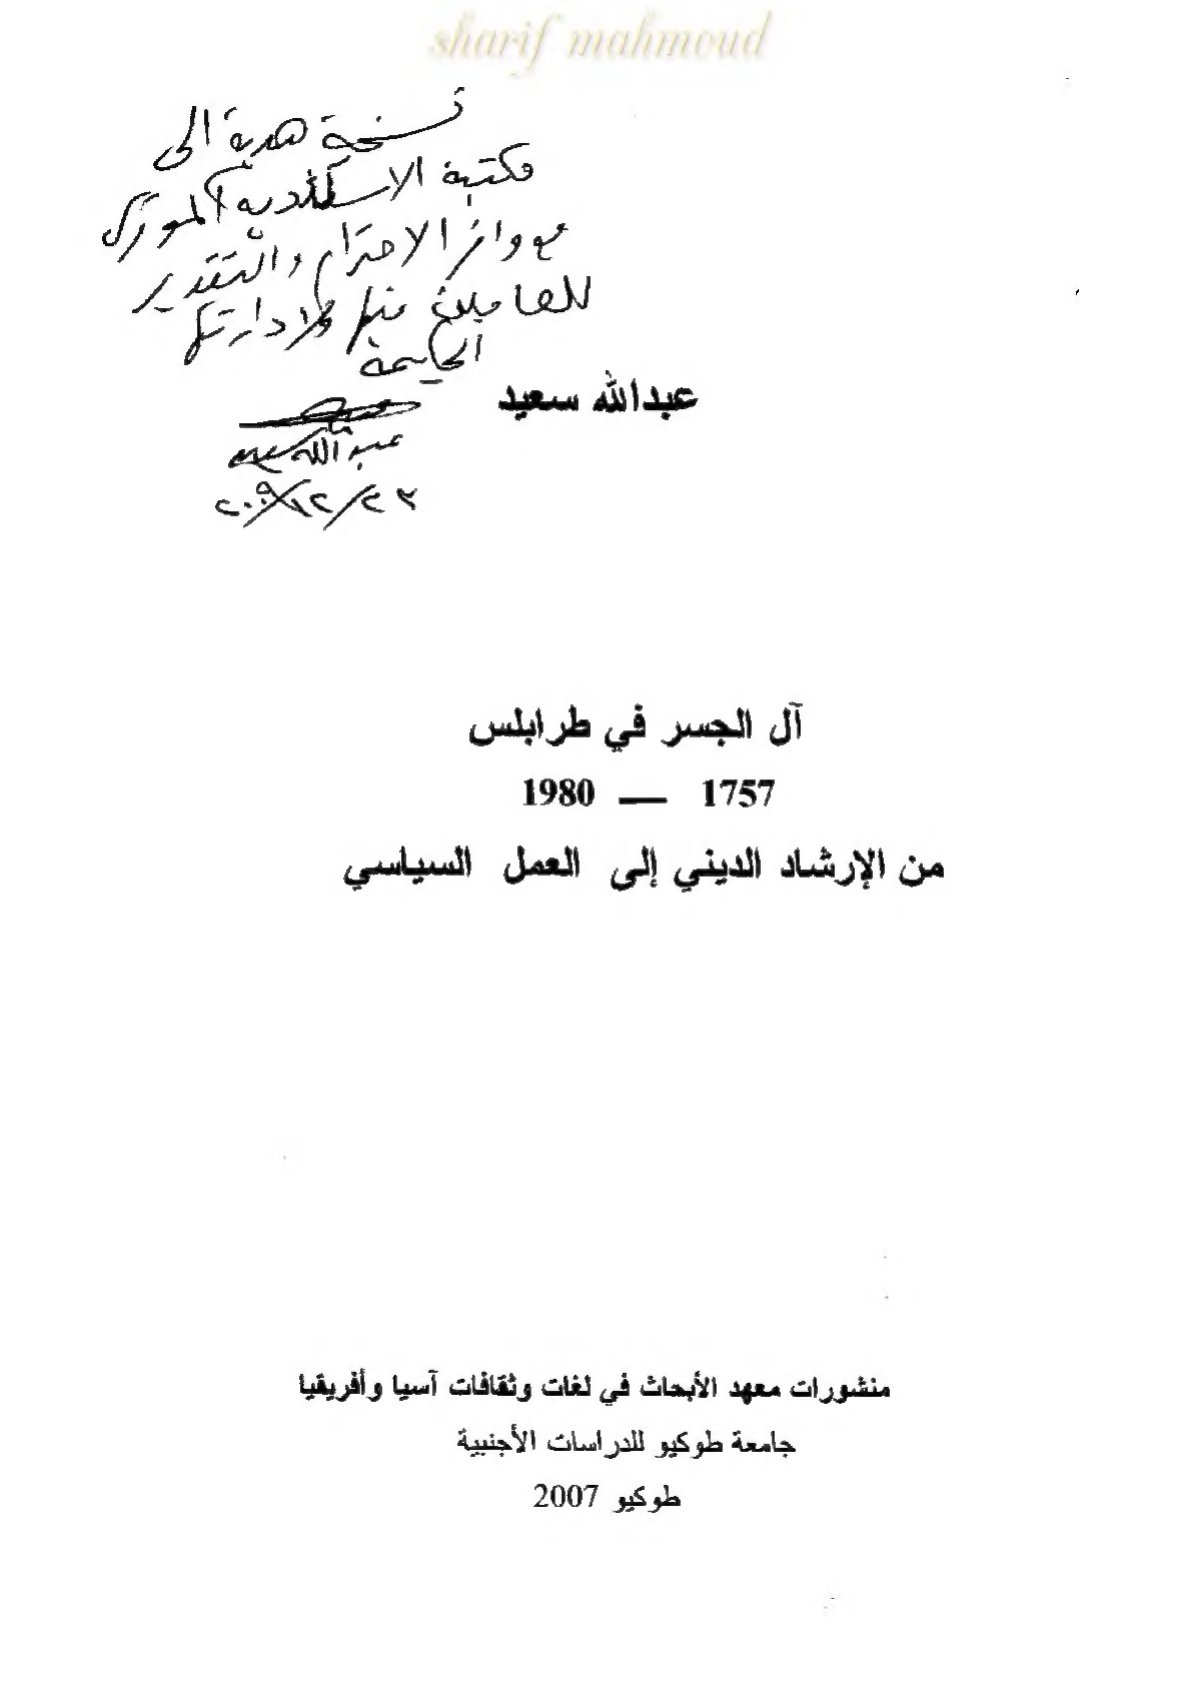 sharif mahmoud
نسخة هدية الى
مكتبة الاسكندرية
مع وافر الاحترام والتقدير
للعاملين فيها ولادارتها
عبدالله سعيد
عبد الله سعيد
٢٣/١٢/٢٠٠٩
آل الجسر في طرابلس
1757 — 1980
من الإرشاد الديني إلى العمل السياسي
منشورات معهد الأبحاث في لغات وثقافات آسيا وأفريقيا
جامعة طوكيو للدراسات الأجنبية
طوكيو 2007